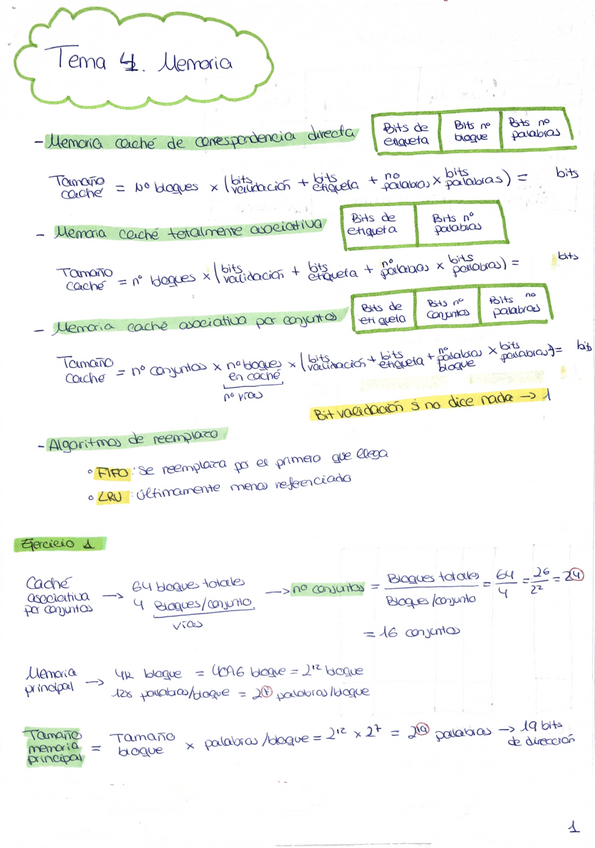 Tema 4. Memoria
- Memoria caché de correspondencia directa
Bits de etiqueta | Bits nº bloque | Bits nº palabras
Tamaño caché = Nº bloques x (bits validación + bits etiqueta + nº palabras x bits palabras) = bits
- Memoria caché totalmente asociativa
Bits de etiqueta | Bits nº palabras
Tamaño caché = nº bloques x (bits validación + bits etiqueta + nº palabras x bits palabras) = bits
- Memoria caché asociativa por conjuntos
Bits de etiqueta | Bits nº conjuntos | Bits nº palabras
Tamaño caché = nº conjuntos x nº bloques en caché x (bits validación + bits etiqueta + nº palabras bloque x bits palabras) = bits
nº vías
Bit validación si no dice nada → 1
- Algoritmos de reemplazo
° FIFO: Se reemplaza por el primero que llega
° LRU: últimamente menos referenciado
Ejercicio 1
Caché asociativa por conjuntos → 64 bloques totales
4 Bloques/conjunto
vías
→ nº conjuntos = Bloques totales / Bloques/conjunto = 64/4 = 26/2² = 24
= 16 conjuntos
Memoria principal → 4K bloque = 4096 bloque = 2¹² bloque
128 palabras/bloque = 2⁷ palabras/bloque
Tamaño memoria principal = Tamaño bloque x palabras/bloque = 2¹² x 2⁷ = 2¹⁹ palabras → 19 bits de dirección
1